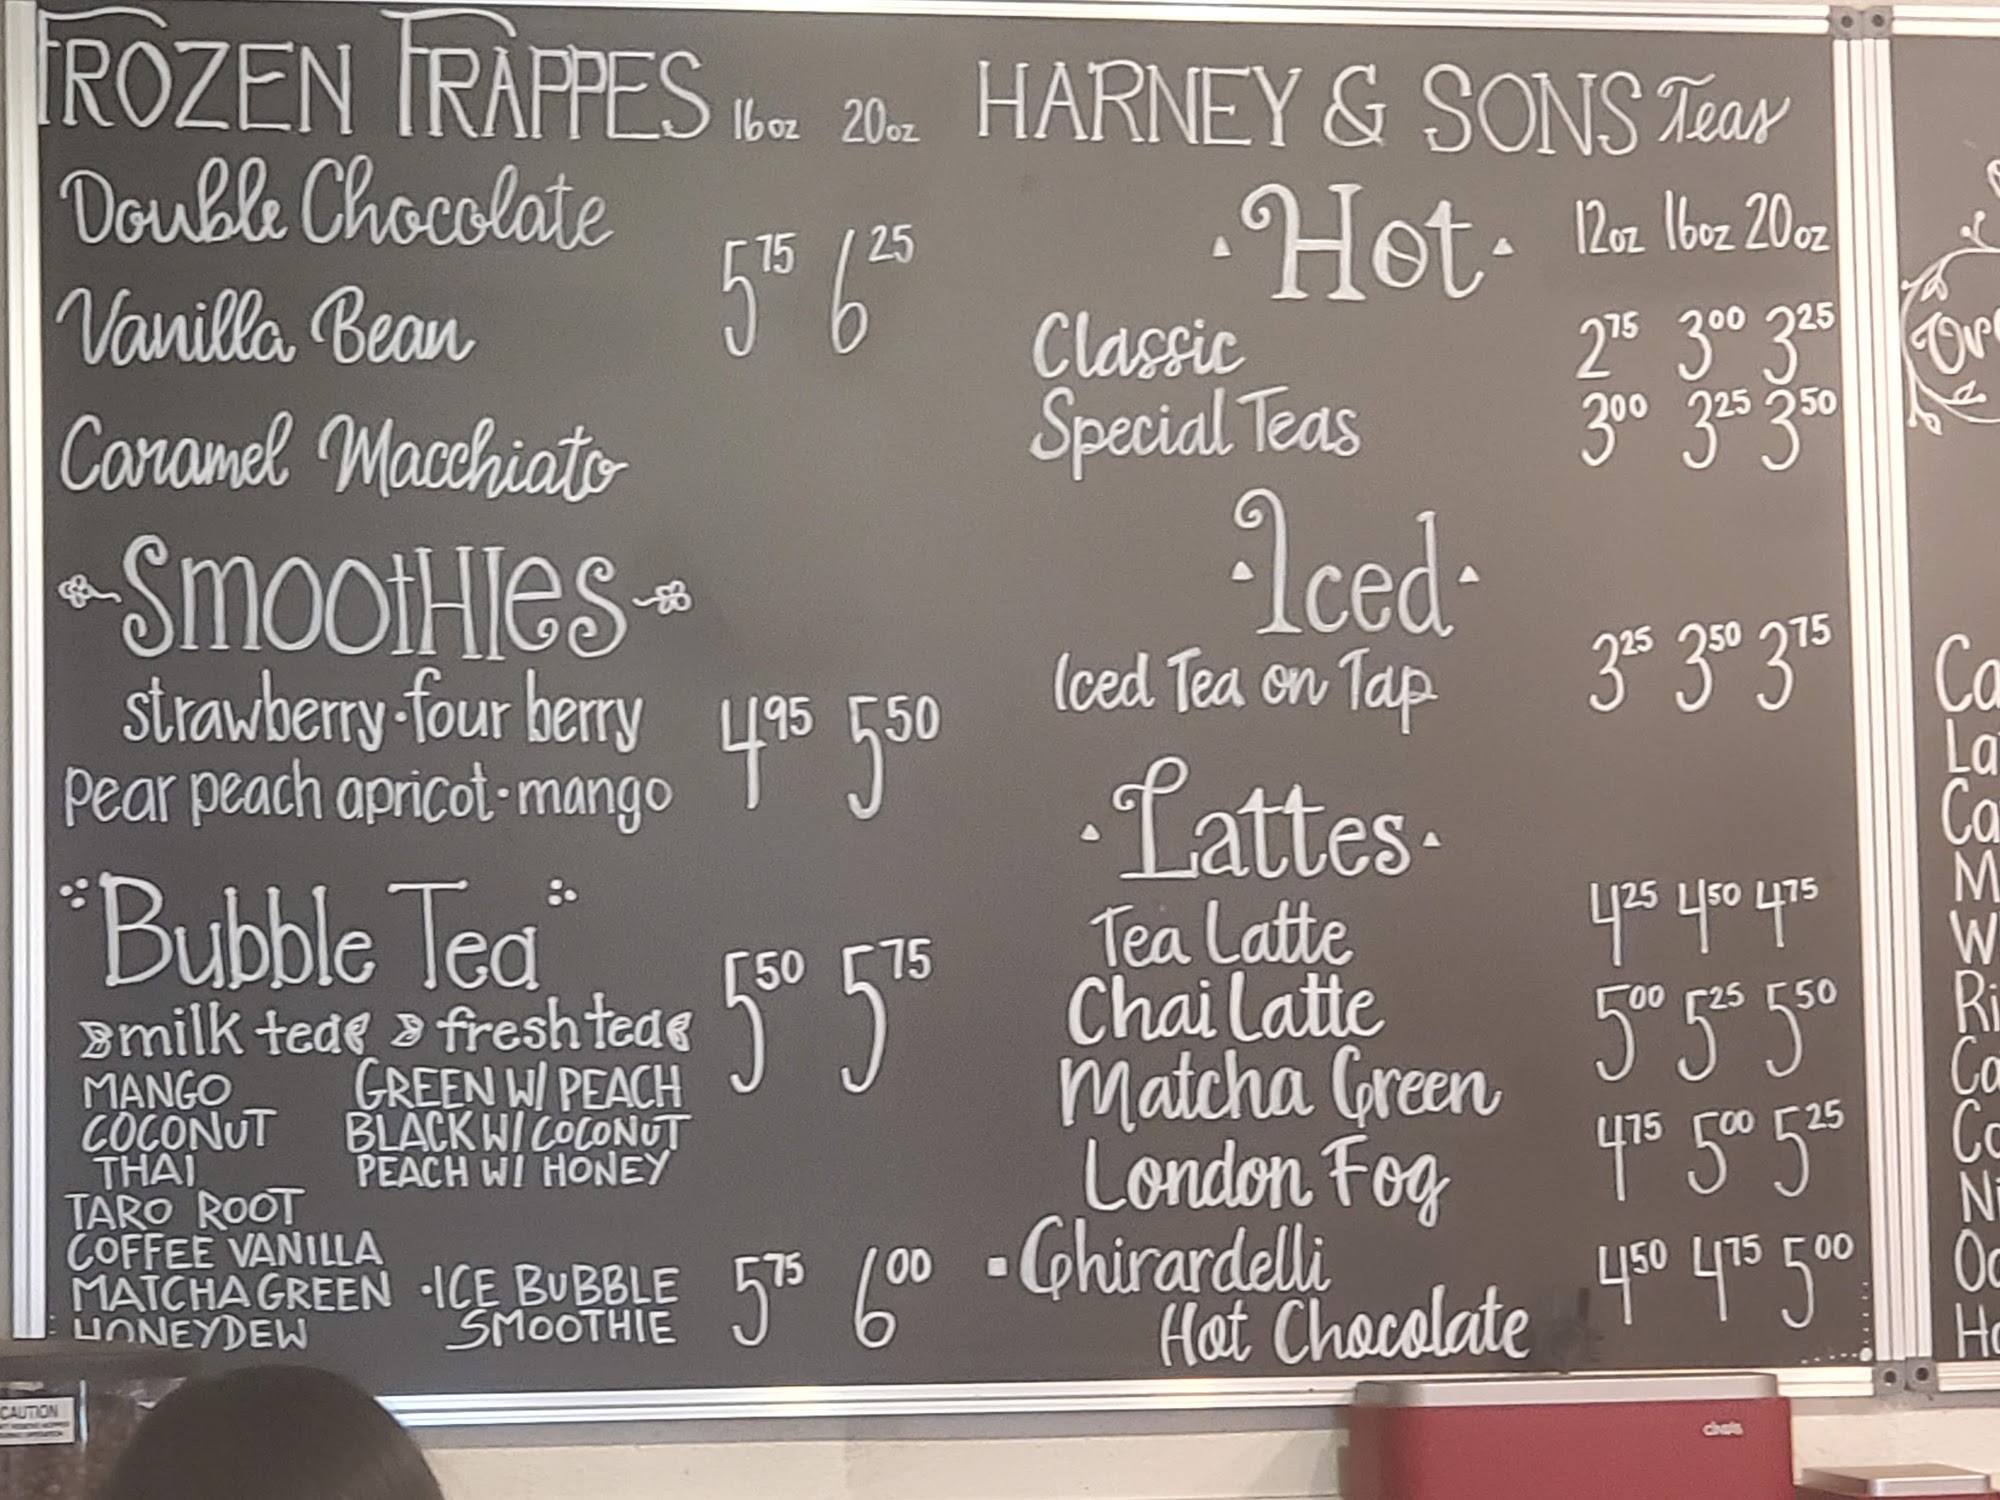 FROZEN FRAPPES 16oz 20oz
Double Chocolate
Vanilla Bean 5 75 6 25
Caramel Macchiato
Smoothies
strawberry · four berry 4 95 5 50
pear peach apricot · mango
Bubble Tea 5 50 5 75
milk tea fresh tea
MANGO GREEN W/ PEACH
COCONUT BLACK W/ COCONUT
THAI PEACH W/ HONEY
TARO ROOT
COFFEE VANILLA
MATCHA GREEN · ICE BUBBLE 5 75 6 00
HONEYDEW SMOOTHIE
HARNEY & SONS Teas
· Hot · 12oz 16oz 20oz
Classic 2 75 3 00 3 25
Special Teas 3 00 3 25 3 50
· Iced ·
Iced Tea on Tap 3 25 3 50 3 75
· Lattes ·
Tea Latte 4 25 4 50 4 75
Chai Latte 5 00 5 25 5 50
Matcha Green
London Fog 4 75 5 00 5 25
Ghirardelli 4 50 4 75 5 00
Hot Chocolate
CAUTION
Ca
La
Ca
M
W
Ri
Ca
Co
Ni
Ho